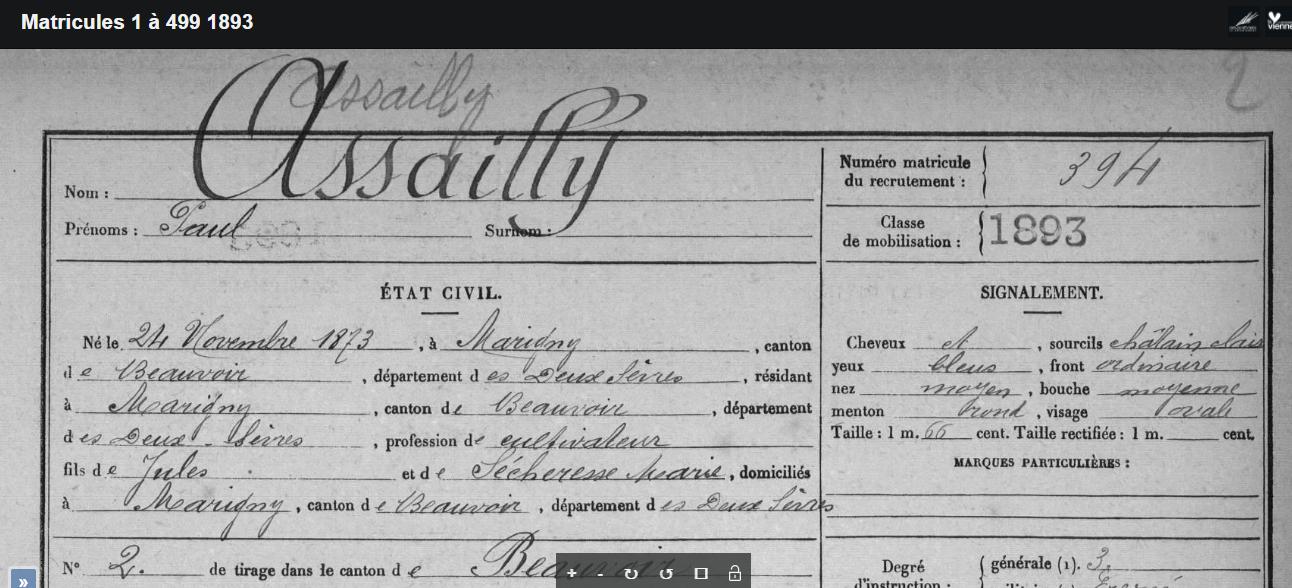 Matricules 1 à 499 1893
vienne
Assailly
2
Assailly
Nom :
Numéro matricule
du recrutement : 394
Prénoms : Paul Surnom :
Classe
de mobilisation : 1893
ÉTAT CIVIL.
Né le 24 Novembre 1873, à Marigny, canton
de Beauvoir, département des Deux Sèvres, résidant
à Marigny, canton de Beauvoir, département
des Deux-Sèvres, profession de cultivateur
fils de Jules et de Sécheresse Marie, domiciliés
à Marigny, canton de Beauvoir, département des Deux Sèvres
N° 2. de tirage dans le canton de Beauvoir
SIGNALEMENT.
Cheveux et, sourcils châtain clair
yeux bleus, front ordinaire
nez moyen, bouche moyenne
menton rond, visage ovale
Taille : 1 m. 66 cent. Taille rectifiée : 1 m. cent.
MARQUES PARTICULIÈRES :
Degré
d'instruction :
générale (1). 3
»
+ -